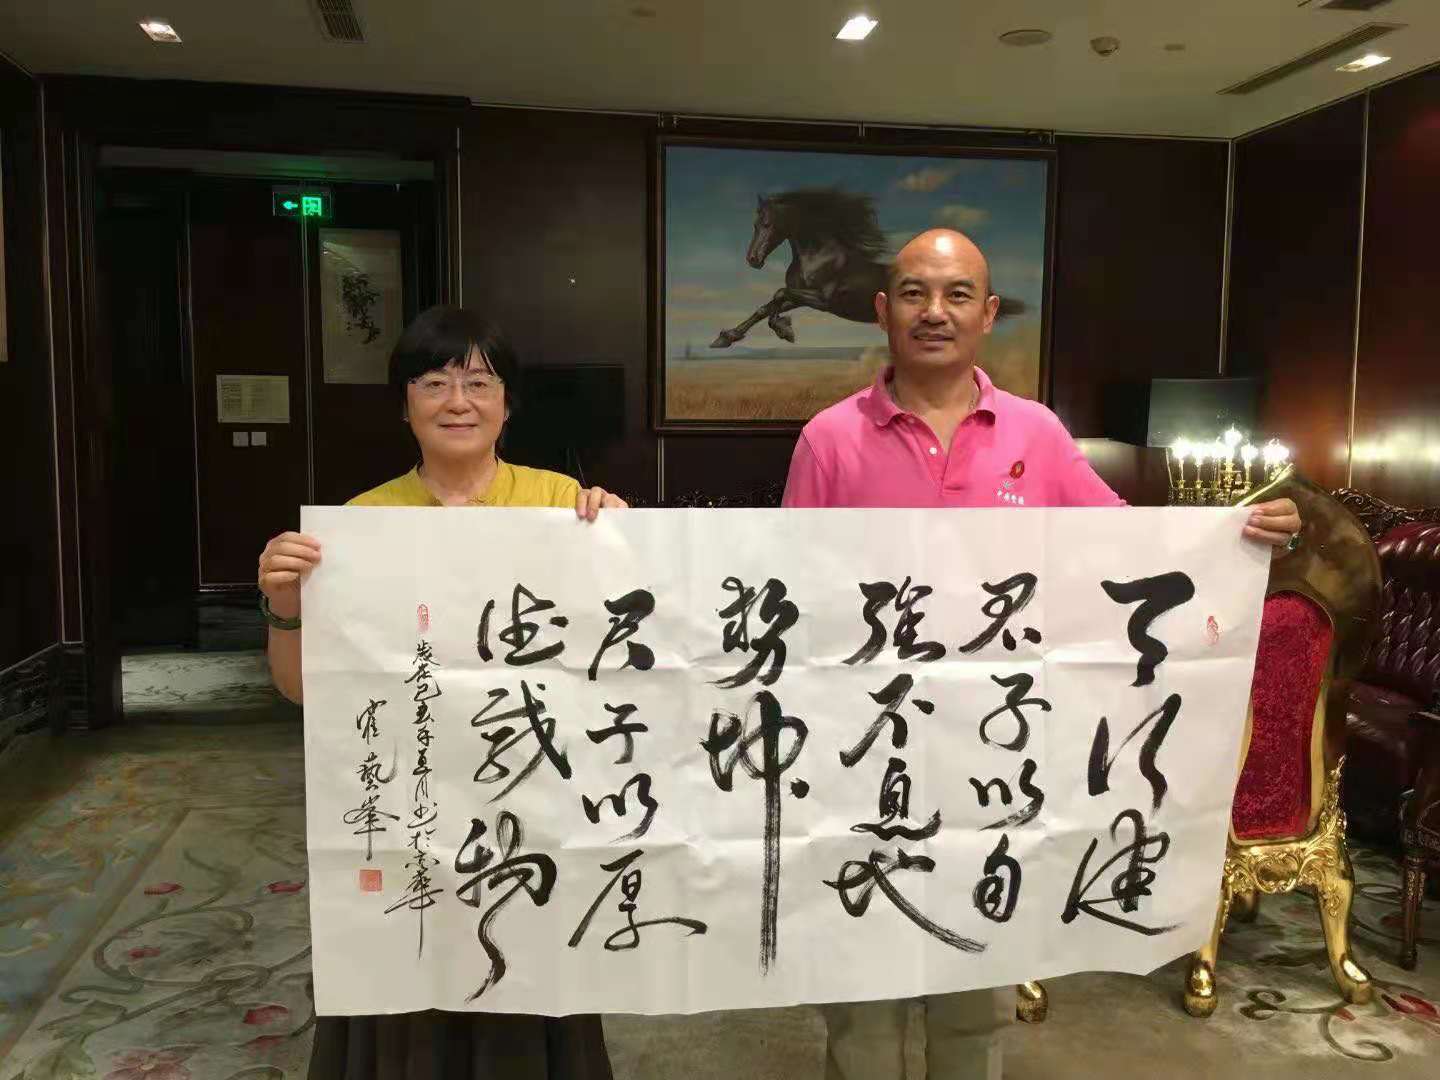 天行健
君子以自
强不息地
势坤
君子以厚
德载物
岁在己亥年夏月书于京华
霍艺峰